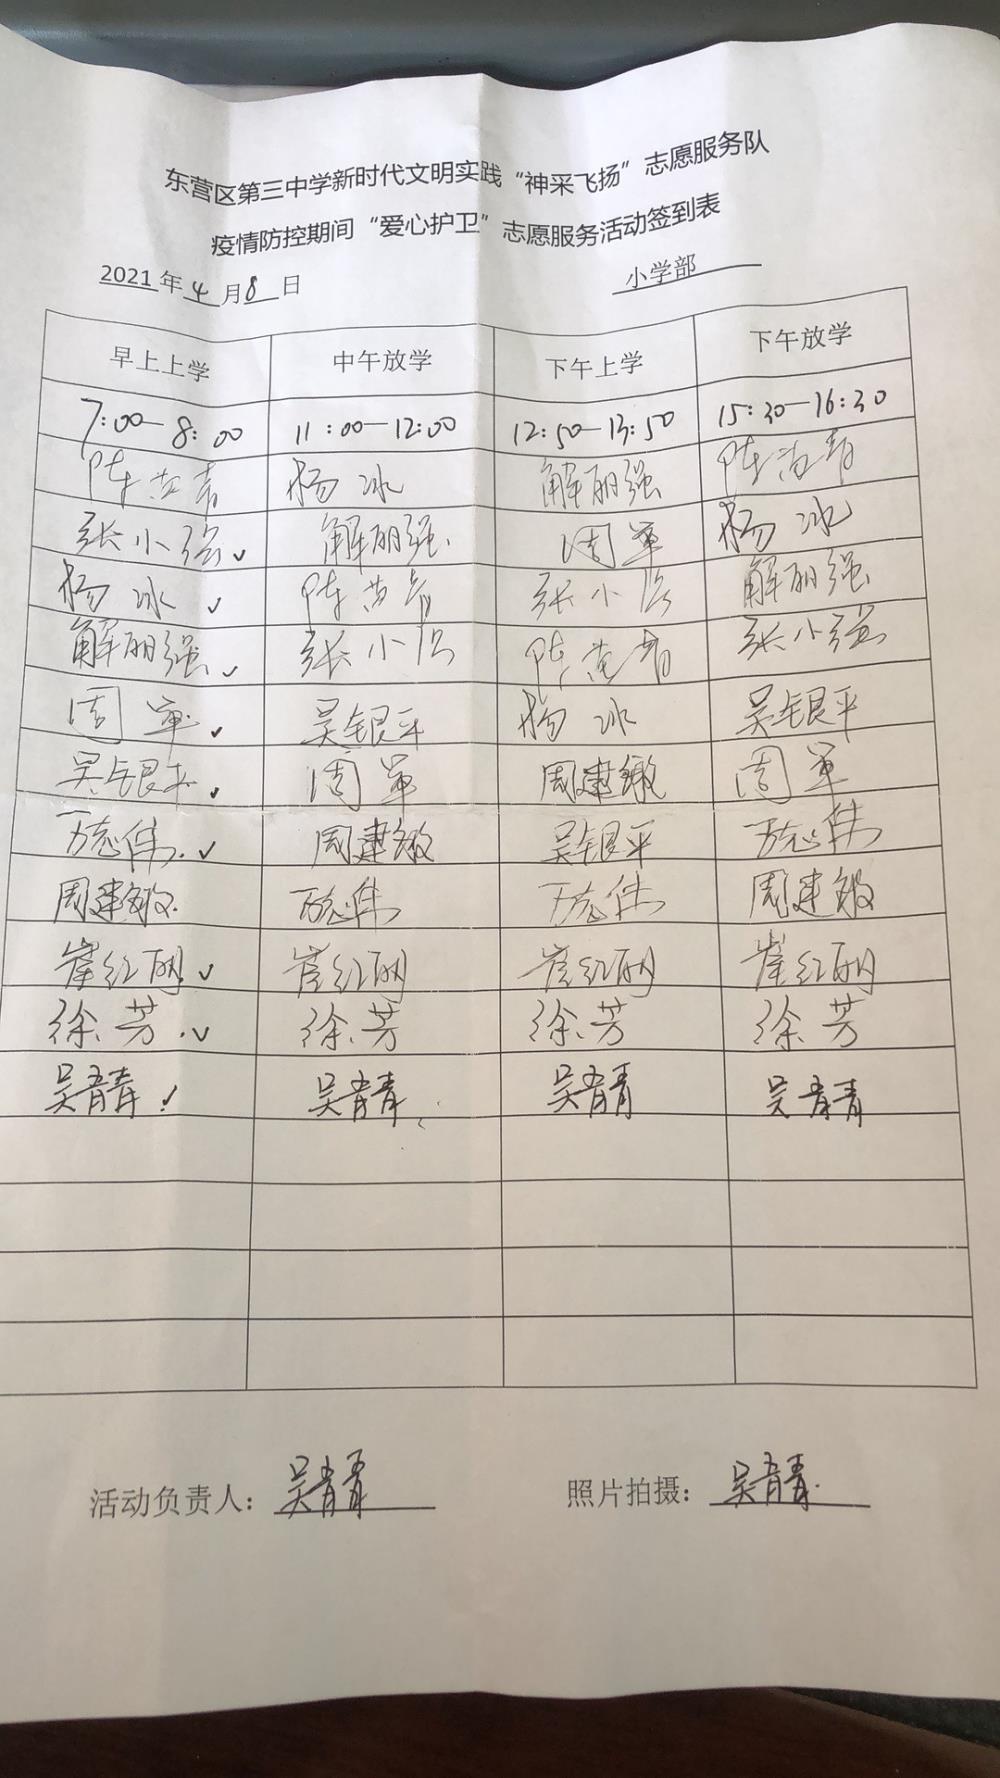 东营区第三中学新时代文明实践“神采飞扬”志愿服务队
疫情防控期间“爱心护卫”志愿服务活动签到表
2021年4月8日 小学部
早上上学 中午放学 下午上学 下午放学
7:00—8:00 11:00—12:00 12:50—13:50 15:30—16:30
陈苗青 杨冰 解丽强 陈苗青
张小强✓ 解丽强 周军 杨冰
杨冰✓ 陈苗青 张小强 解丽强
解丽强✓ 张小强 陈苗青 张小强
周军✓ 吴银平 杨冰 吴银平
吴银平✓ 周军 周建敏 周军
万志伟✓ 周建敏 吴银平 万志伟
周建敏 万志伟 万志伟 周建敏
崔红丽✓ 崔红丽 崔红丽 崔红丽
徐芳✓ 徐芳 徐芳 徐芳
吴青青✓ 吴青青 吴青青 吴青青
活动负责人：吴青青 照片拍摄：吴青青